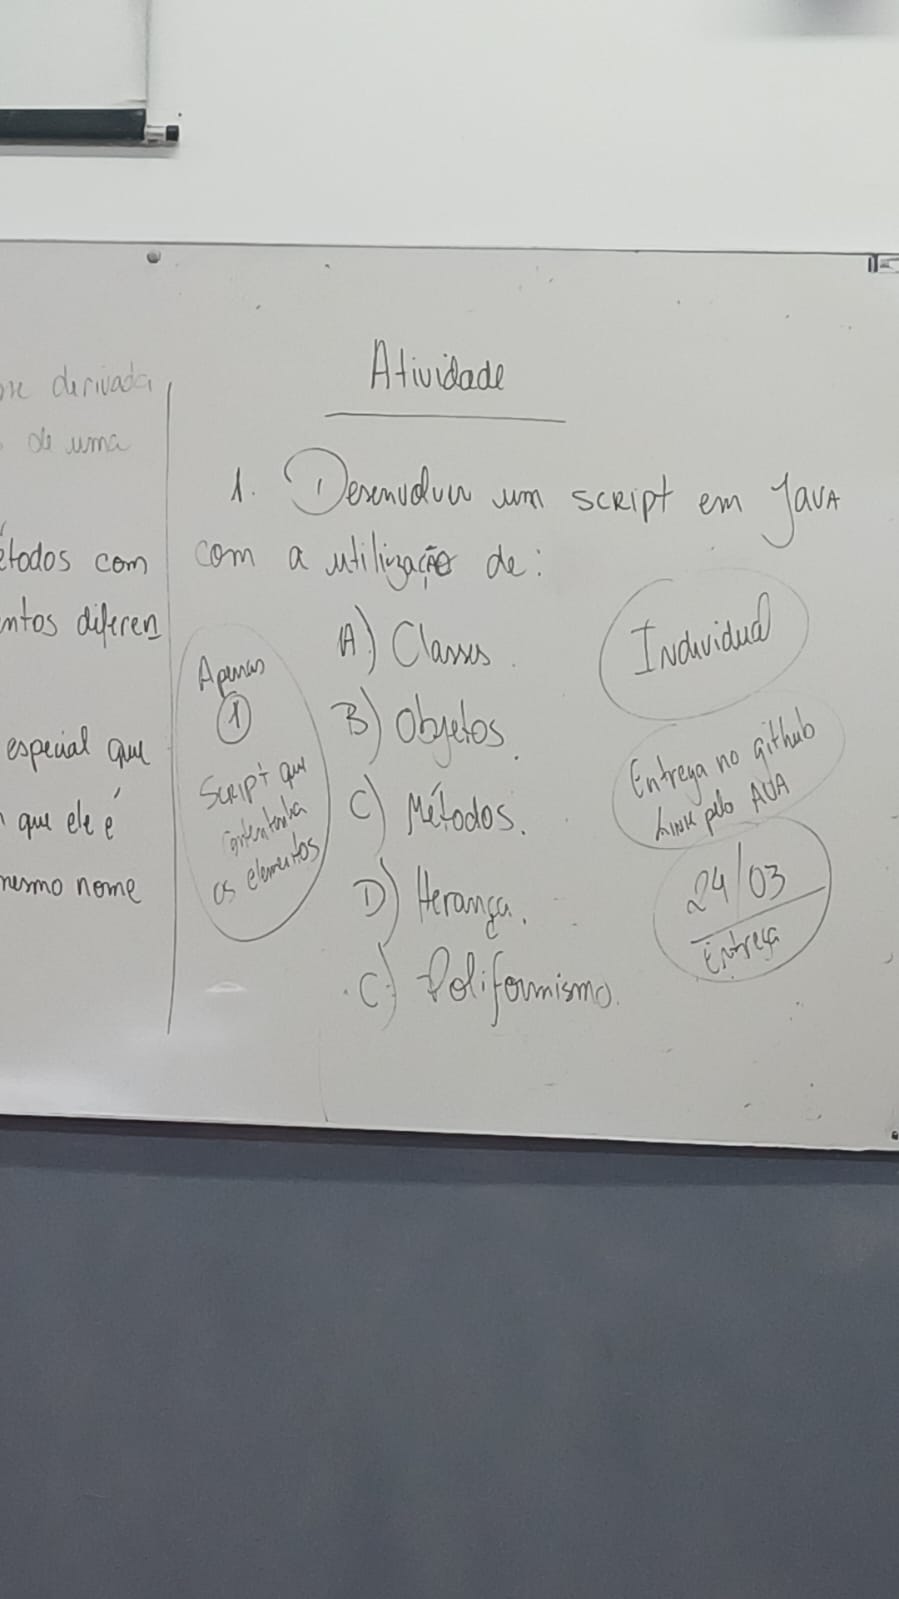 derivada
de uma
étodos com
ntos diferen
especial que
que ele é
mesmo nome
Atividade
1. Desenvolver um script em JAVA
com a utilização de:
A) Classes.
B) Objetos.
C) Métodos.
D) Herança.
C) Poliformismo.
Apenas
1
Script que
os elementos
Individual
Entrega no github
Link pelo AVA
24/03
Entrega